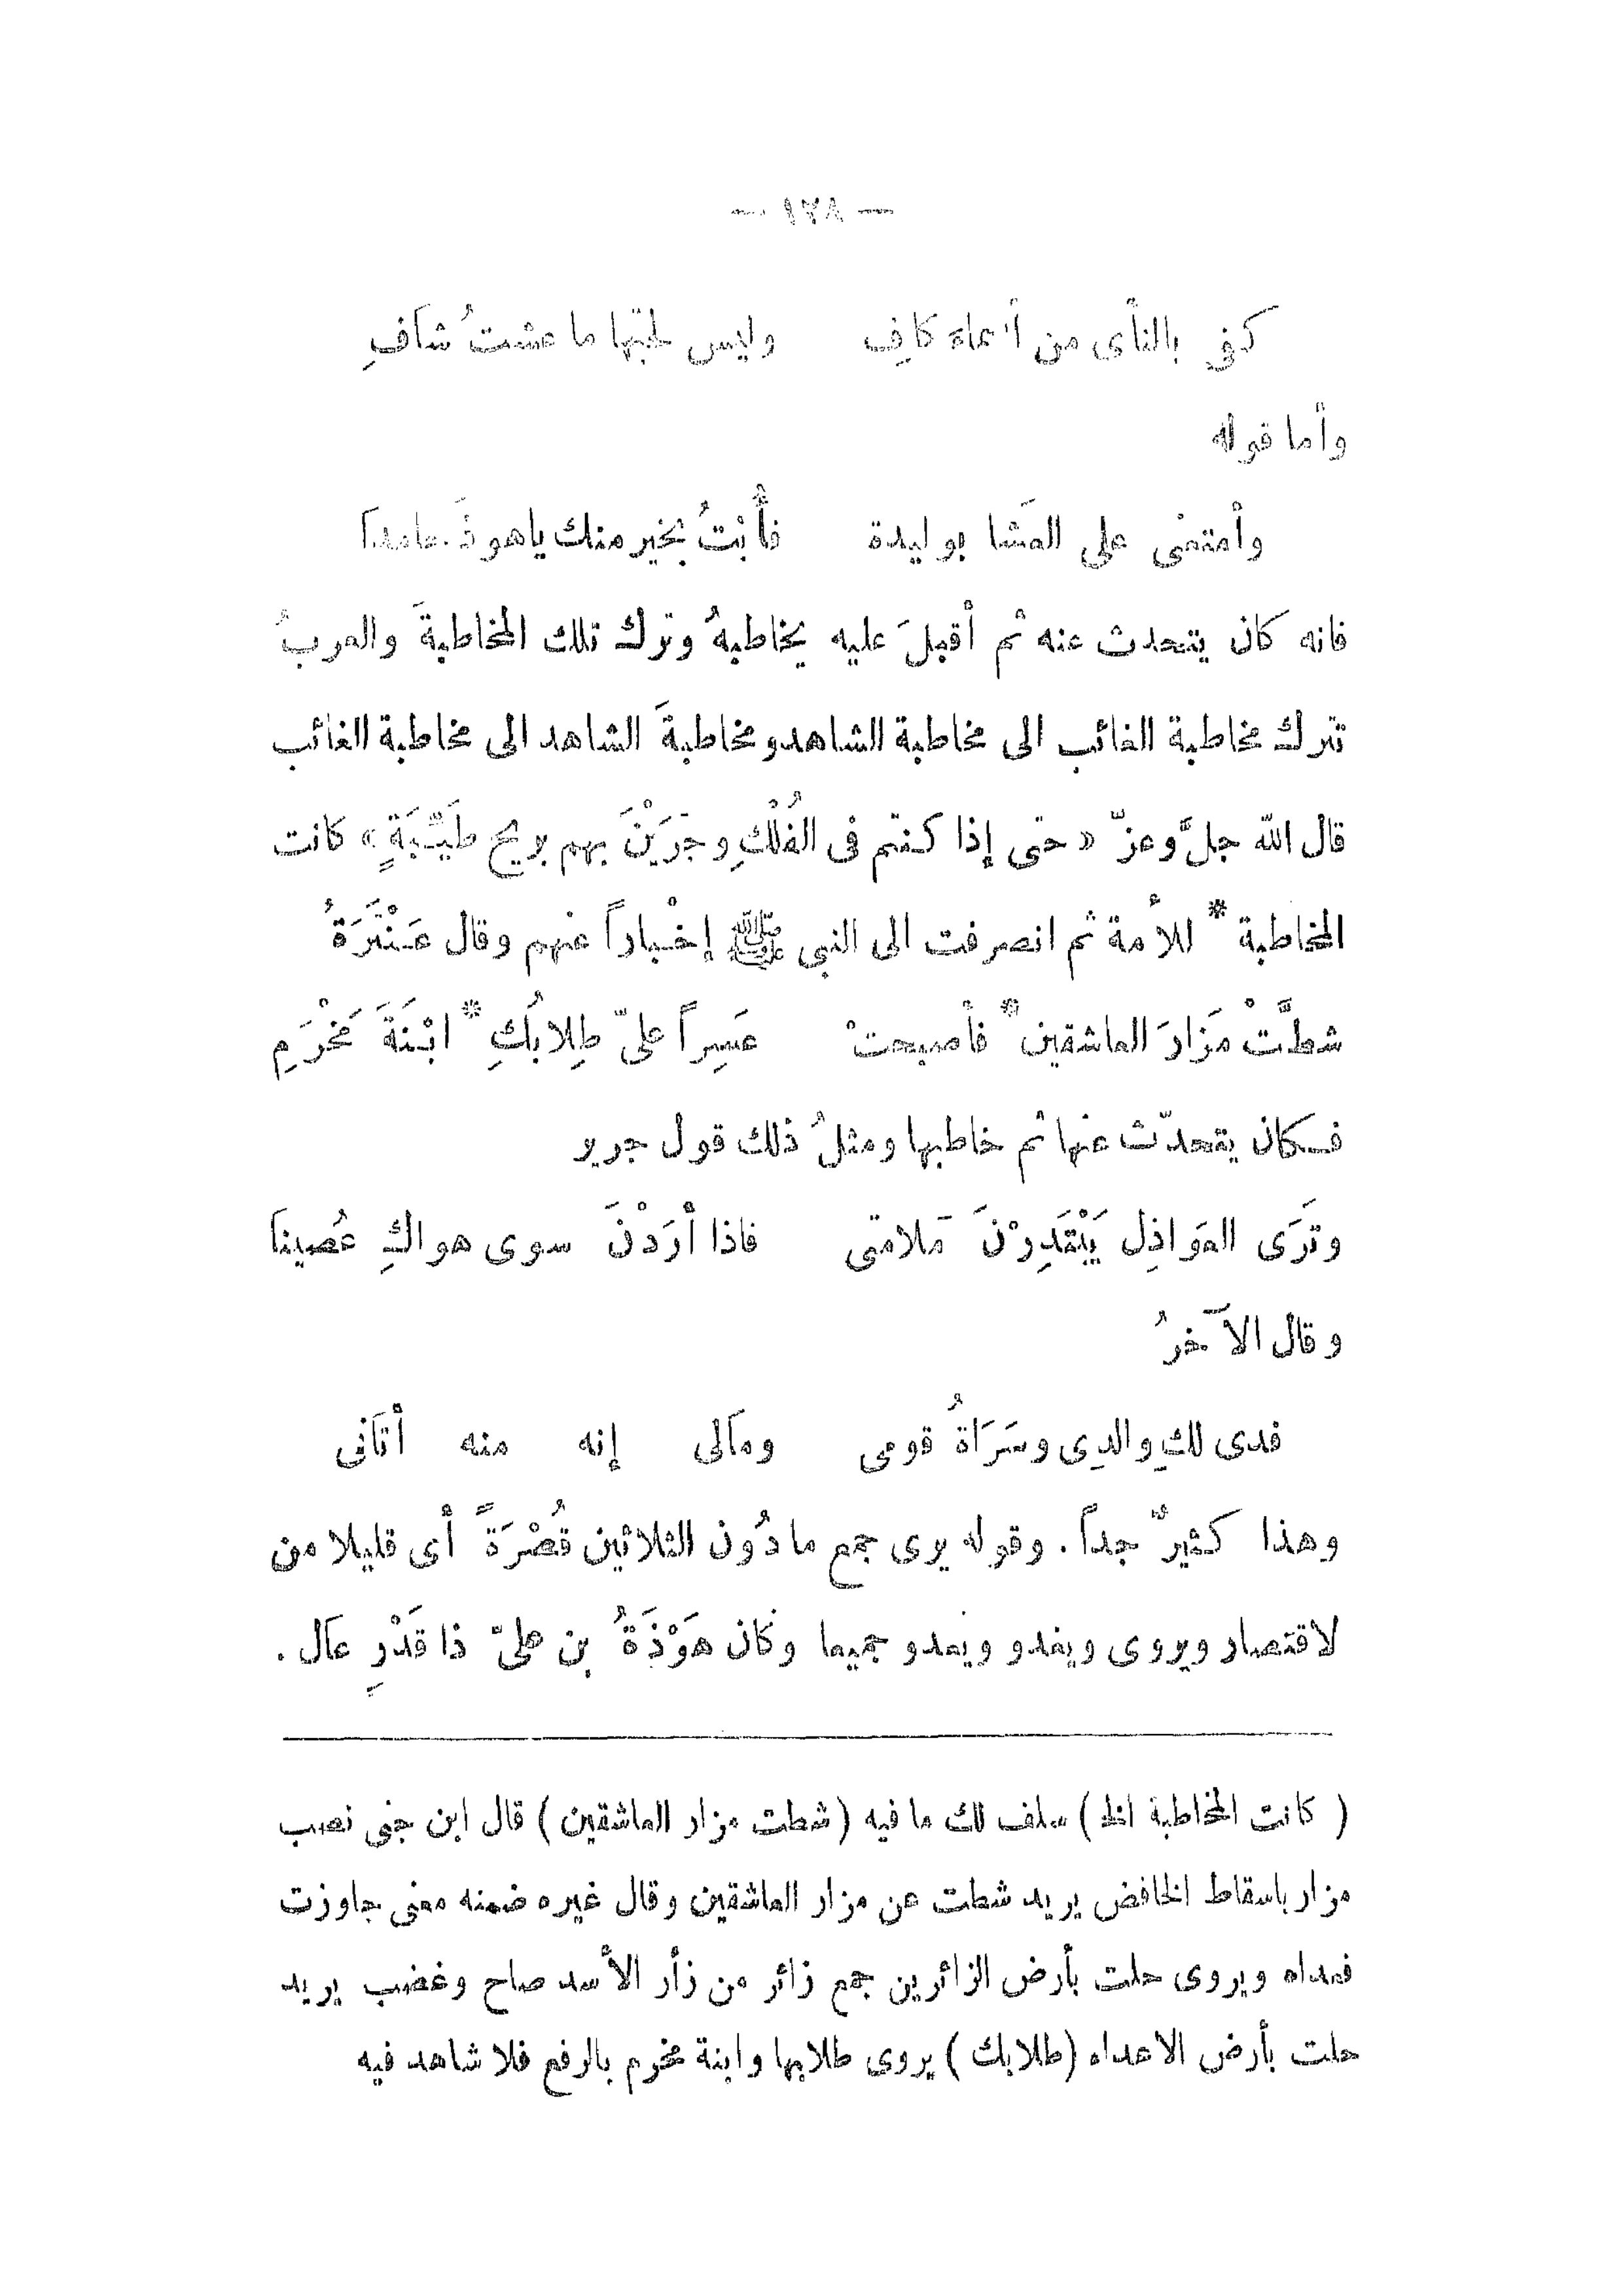 — ١٢٨ —
كفى بالنأى من أسماء كافِ وليس لحبّها ما عشتُ شافِ
وأما قوله
وأمتعنى على العَشا بوليدة فأُبْتُ بخير منك ياهوذَ حامدا
فانه كان يتحدث عنه ثم أقبلَ عليه يخاطبهُ وترك تلك المخاطبةَ والعربُ
تترك مخاطبة الغائب الى مخاطبة الشاهد ومخاطبةَ الشاهد الى مخاطبة الغائب
قال الله جلَّ وعزّ « حتى إذا كنتم فى الفُلْكِ وجَرَيْنَ بهم بريح طَيّبَةٍ » كانت
المخاطبة * للأمة ثم انصرفت الى النبى ﷺ إخْباراً عنهم وقال عَنْتَرَةُ
شطَّتْ مَزَارَ العاشقين * فأصبحتْ عَسِراً علىّ طِلابُكِ * ابْنَةَ مَخْرَمِ
فكان يتحدّث عنها ثم خاطبها ومثلُ ذلك قول جرير
وتَرَى العَواذِل يَبْتَدِرْنَ مَلامتى فاذا أرَدْنَ سوى هواكِ عُصينا
وقال الآخرُ
فدى لكِ والدِى وسَرَاةُ قومى ومالى إنه منه أتانى
وهذا كثيرٌ جداً . وقوله يرى جمع مادُون الثلاثين قُصْرَةً أى قليلا من
لاقتصار ويروى ويغدو ويعدو جميعا وكان هَوْذَةُ بن علىّ ذا قَدْرٍ عال .
( كانت المخاطبة الخ ) سلف لك ما فيه ( شطت مزار العاشقين ) قال ابن جنى نصب
مزار باسقاط الخافض يريد شطت عن مزار العاشقين وقال غيره ضمنه معنى جاوزت
فعداه ويروى حلت بأرض الزائرين جمع زائر من زأر الأسد صاح وغضب يريد
حلت بأرض الاعداء ( طلابك ) يروى طلابها وابنة مخرم بالرفع فلا شاهد فيه